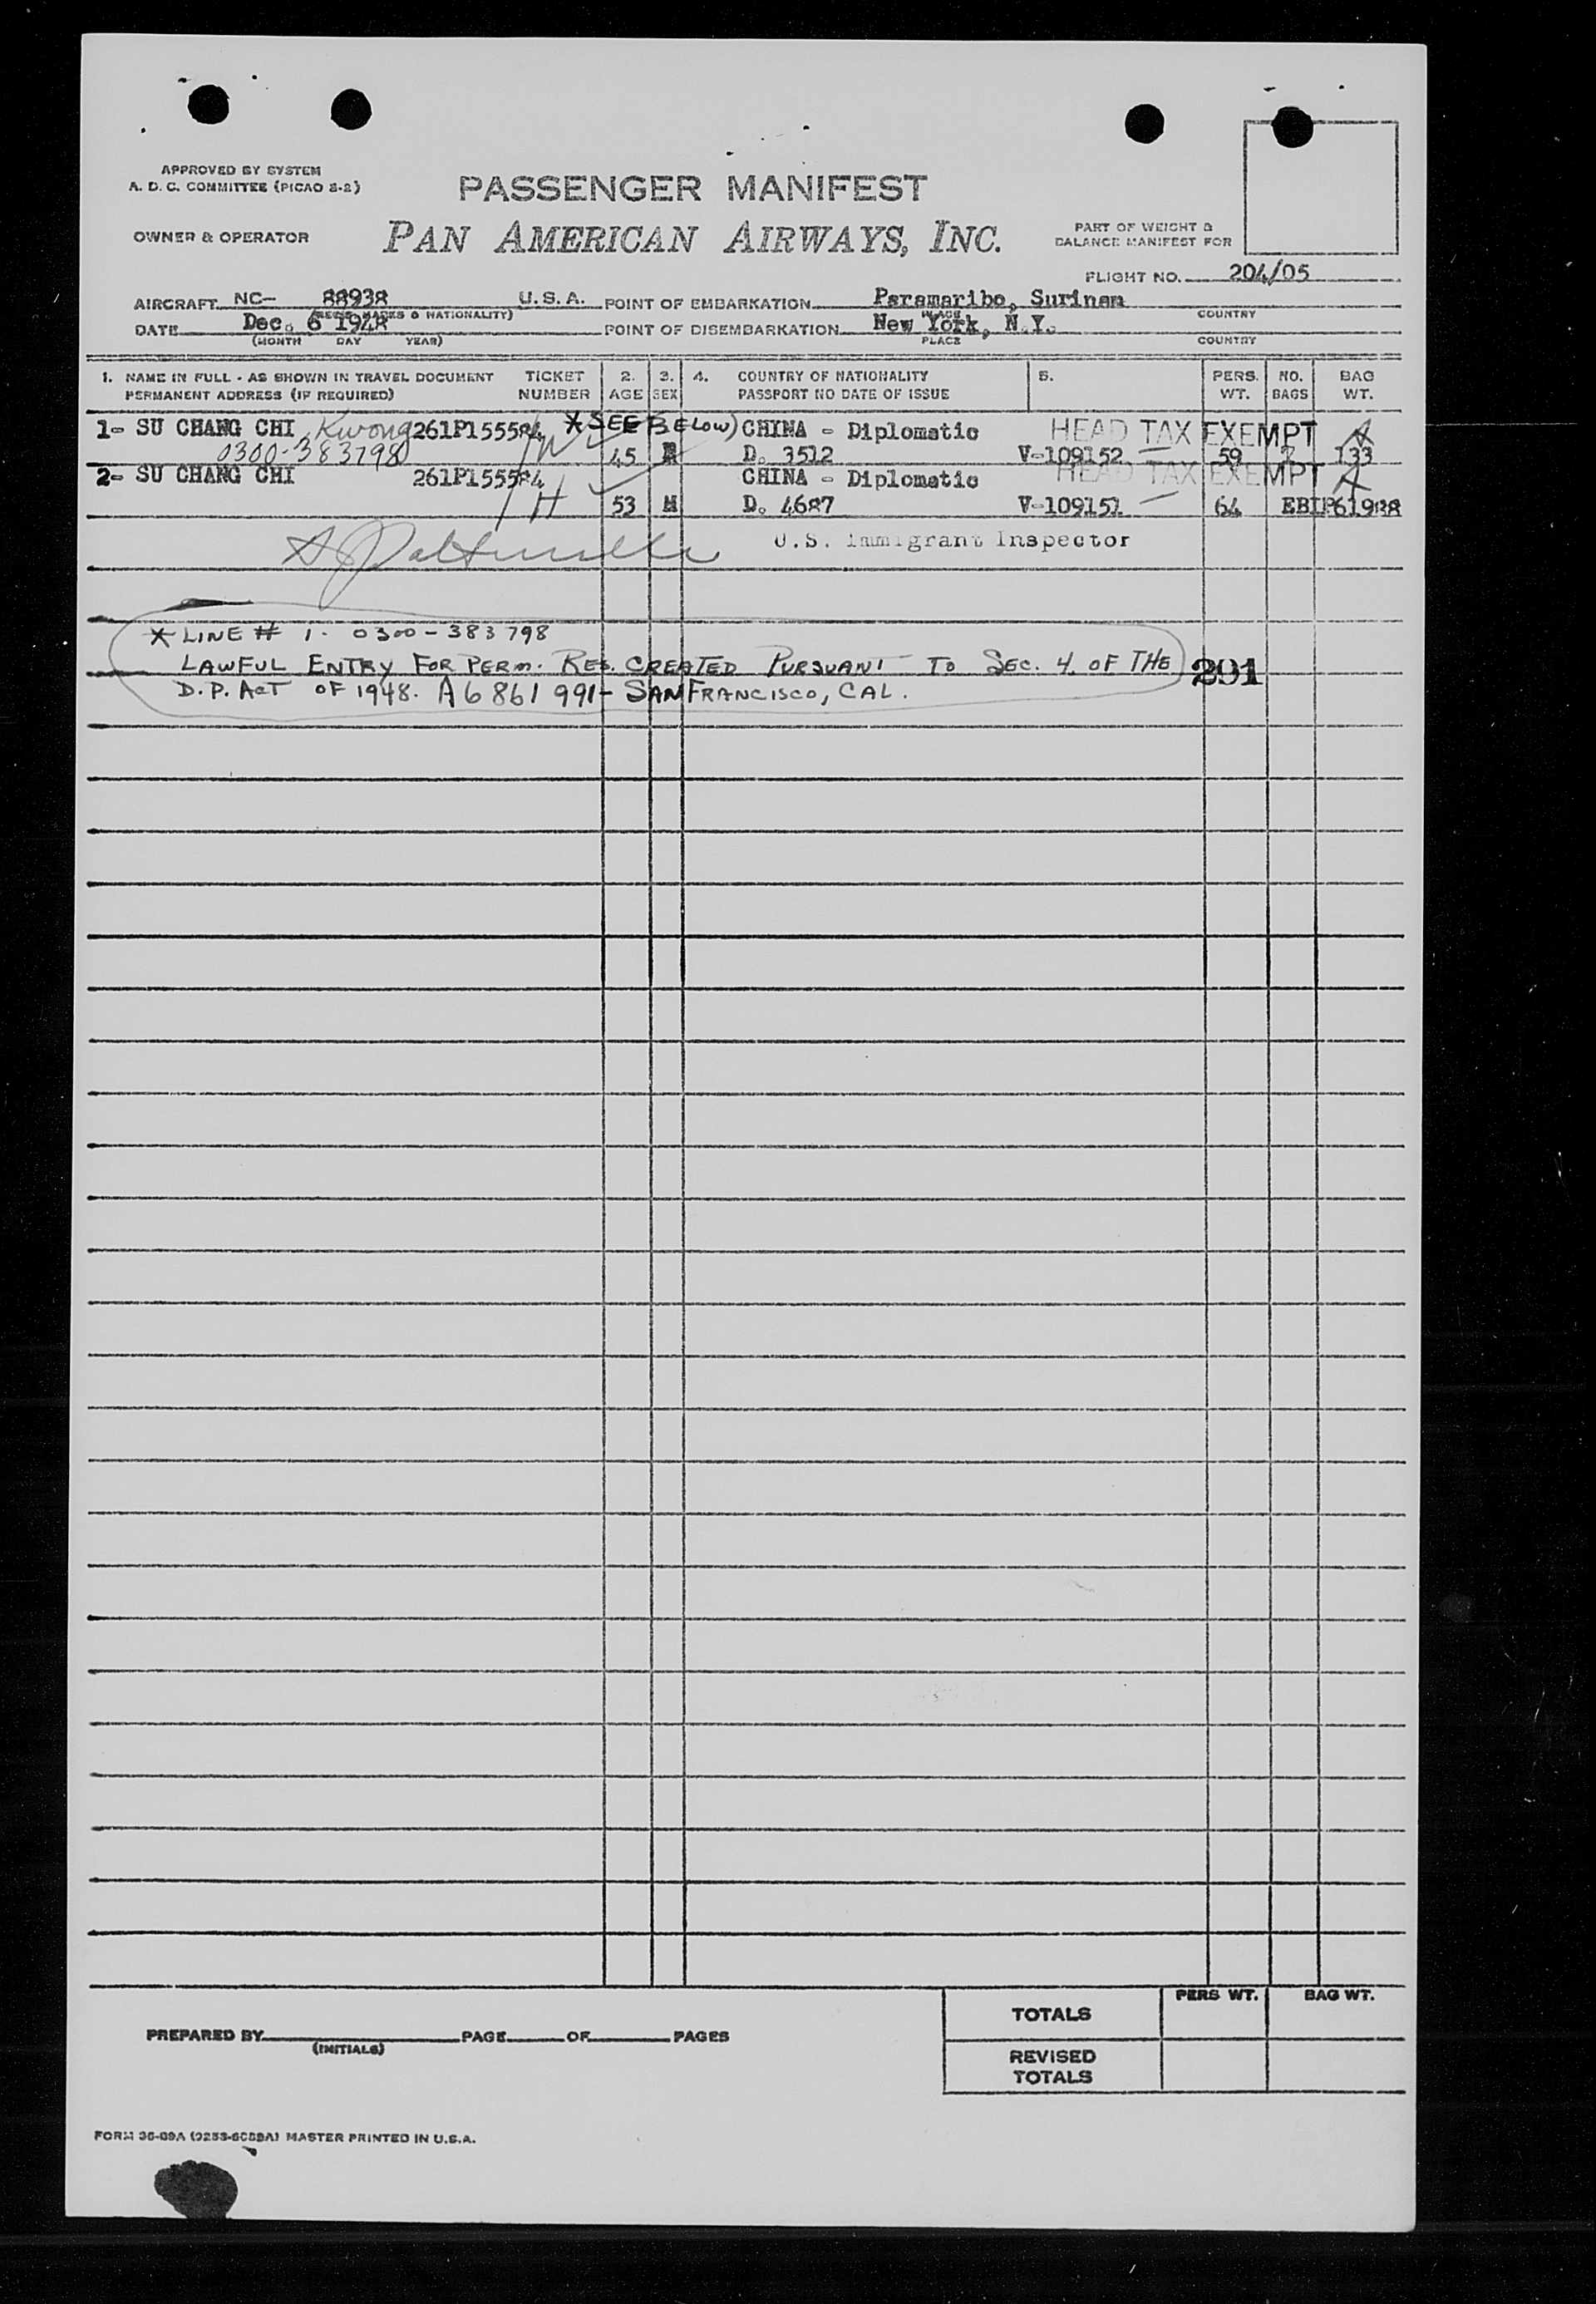 APPROVED BY SYSTEM
A. D. C. COMMITTEE (PICAO S-2)
PASSENGER MANIFEST
OWNER & OPERATOR
PAN AMERICAN AIRWAYS, INC.
PART OF WEIGHT &
BALANCE MANIFEST FOR
FLIGHT NO. 204/05
AIRCRAFT NC- 88938 U.S.A. POINT OF EMBARKATION Paramaribo, Surinam
(REGIS. MARKS & NATIONALITY) PLACE COUNTRY
DATE Dec. 6 1948 POINT OF DISEMBARKATION New York, N.Y.
(MONTH DAY YEAR) PLACE COUNTRY
1. NAME IN FULL - AS SHOWN IN TRAVEL DOCUMENT TICKET 2. 3. 4. COUNTRY OF NATIONALITY 5. PERS. NO. BAG
PERMANENT ADDRESS (IF REQUIRED) NUMBER AGE SEX PASSPORT NO DATE OF ISSUE WT. BAGS WT.
1- SU CHANG CHI Kwong 261P155584 * SEE BELOW) CHINA - Diplomatic HEAD TAX EXEMPT
0300-383798 W 45 D. 3512 V-109152 59 7 133
2- SU CHANG CHI 261P155584 CHINA - Diplomatic HEAD TAX EXEMPT
H 53 M D. 4687 V-109151 64 EBIP61988
U.S. Immigrant Inspector
* LINE # 1. 0300-383798
LAWFUL ENTRY FOR PERM. RES. CREATED PURSUANT TO SEC. 4 OF THE 291
D.P. ACT OF 1948. A6 861 991 - SAN FRANCISCO, CAL.
TOTALS PERS WT. BAG WT.
PREPARED BY PAGE OF PAGES
(INITIALS)
REVISED
TOTALS
FORM 36-09A MASTER PRINTED IN U.S.A.